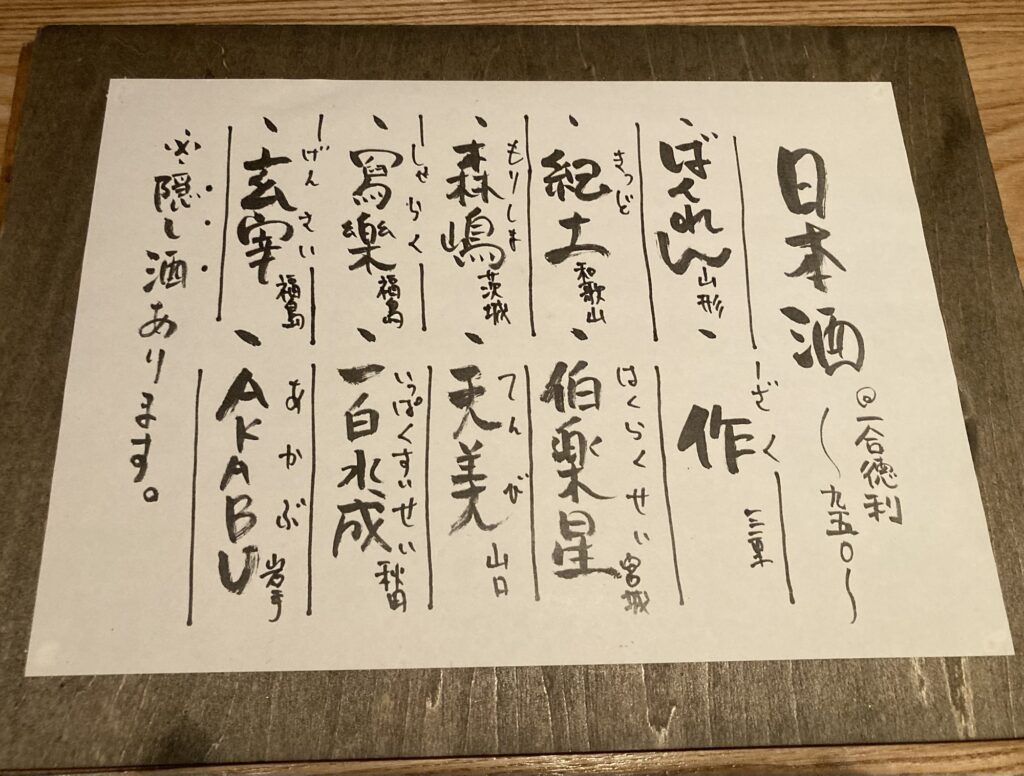 日本酒
◎一合徳利
〜九五〇〜
、ばくれん 山形
きっど
、紀土 和歌山
もりしま
、森嶋 茨城
しゃらく
、寫樂 福島
げんさい
、玄宰 福島
ざく
、作 三重
はくらくせい
、伯楽星 宮城
てんび
、天美 山口
いっぱくすいせい
、一白水成 秋田
あかぶ
、AKABU 岩手
※隠し酒あります。